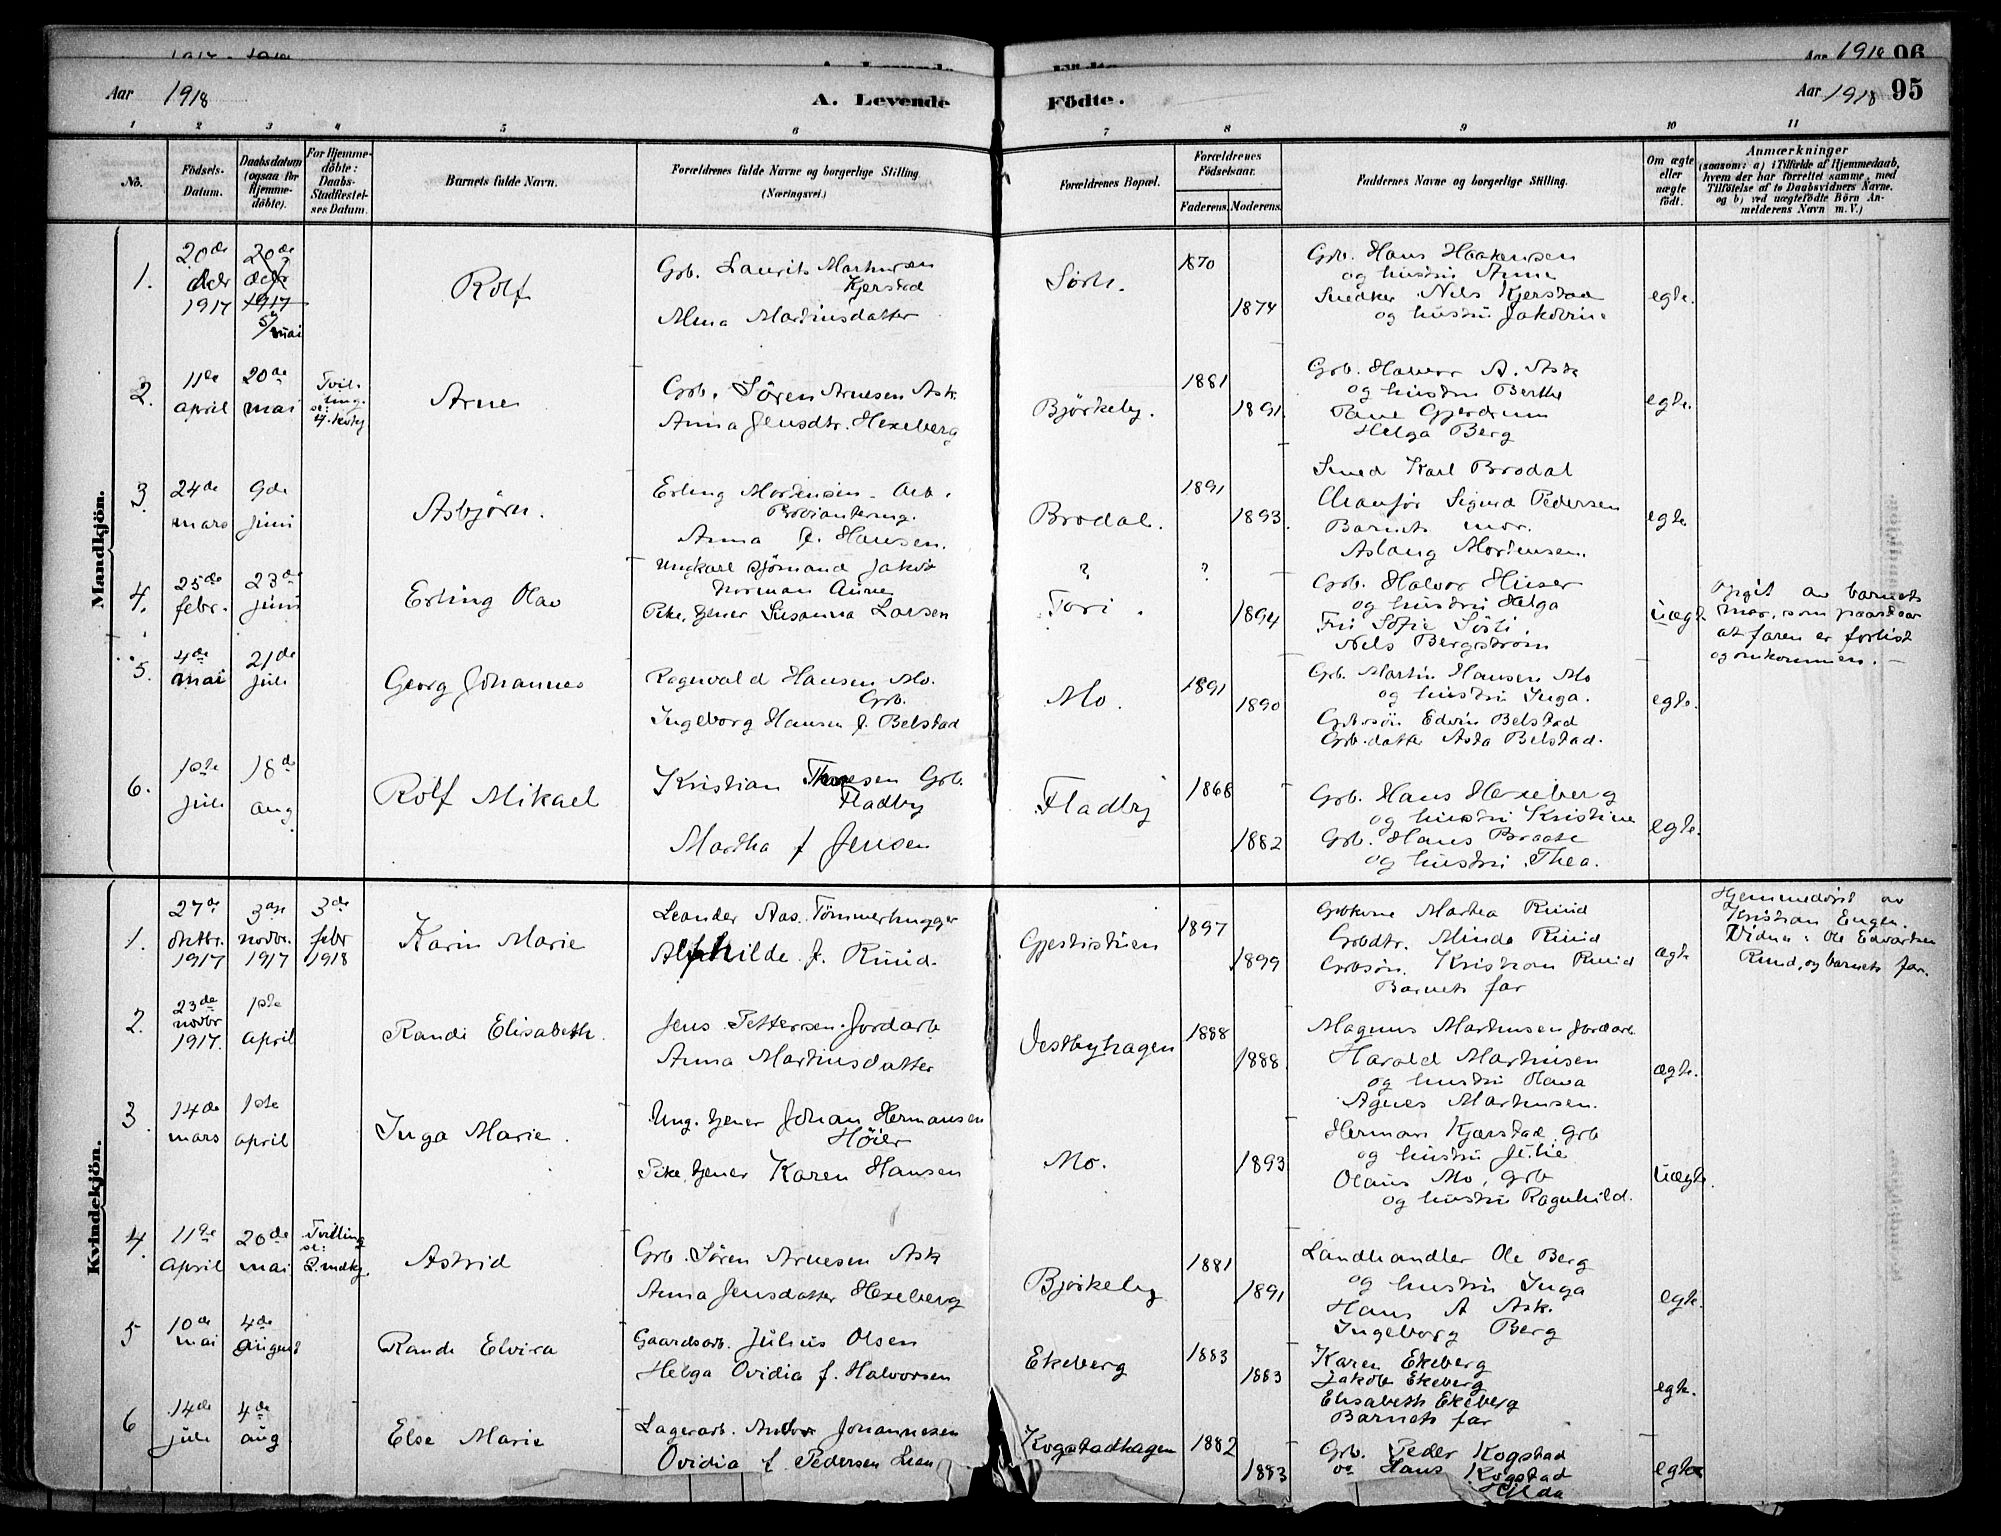 Aar 1918 96
Aar 1918 A. Levende Födte. Aar 1918 95
1 2 3 4 5 6 7 8 9 10 11
No.
Födsels-
Datum.
Daabsdatum
(ogsaa for
Hjemme-
döbte).
For Hjemme-
döbte:
Daabs-
Stadfæstel-
ses Datum.
Barnets fulde Navn.
Forældrenes fulde Navne og borgerlige Stilling.
(Næringsvei.)
Forældrenes Bopæl.
Forældrenes
Födselsaar.
Faderens. Moderens.
Faddernes Navne og borgerlige Stilling.
Om ægte
eller
uægte
födt.
Anmærkninger
(saasom: a) i Tilfælde af Hjemmedaab,
hvem der har forrettet samme, med
Tilföielse af to Daabsvidners Navne.
og b) ved uægtefödte Börn An-
melderens Navn m. V.)
Mandkjön.
1.
20de
dcbr
1917
30de
dcbr
1917
5/ mai
Rolf
Grb. Laurits Martinsen
Kjerstad
Alma Martinsdatter
Sörli.
1870
1874
Grb. Hans Haakensen
og hustru Anne
Snedker Nils Kjerstad
og hustru Jakobine
egte.
2.
11te
april
20de
mai
Tvil-
ling.
se:
4. kvkj
Arne
Grb. Sören Arnesen Ask
Anna Jensdtr. Hexeberg
Björkeby.
1881
1891
Grb. Halvor A. Ask
og hustru Berthe
Gjerdrum
Helga Berg
egte.
3.
24de
mars
9de
juni
Asbjörn.
Erling Mortensen - Arb.
Proviantering.
Anna f. Hansen.
Brodal.
1891
1893.
Smed Karl Brodal
Chauför Sigurd Pedersen
Barnets mor.
Aslaug Mortensen.
egte
4.
25de
febr.
23de
juni
Erling Olav
Ungkarl sjömand Jakob
Norman Aune
Pike, tjener Susanna Larsen
?
Tori.
?
1894
Grb. Halvor Huser
og hustru Helga
Fru Sofie Sörli.
Nils Bergström
uægte
Opgit av barnets
mor, som paastaar
at faren er forlist
og omkommen. -
5.
4de
mai
21de
juli
Georg Johannes
Ragnvald Hansen Mo.
Grb.
Ingeborg Hansen f. Belstad
Mo.
1891
1890
Grb. Martin Hansen Mo
og hustru Inga.
Grb.sön Edvin Belstad
Grb.datter Asta Belstad.
egte.
6.
1ste
juli
18de
aug
Rolf Mikael
Kristian Thoresen Grb.
Fladby
Martha f Jensen
Fladby
1868
1882
Grb. Hans Hexeberg
og hustru Kristine
Grb. Hans Braate
og hustru Thea.
egte.
Kvindekjön.
1.
27de
oktbr.
1917
3die
novbr.
1917
3de
febr
1918
Karin Marie
Leander Aas. Tömmerhugger
Alfhilde f. Ruud.
Gjestistuen
1897
1899
Grbkone Martea Ruud
Grbdtr. Minda Ruud
Grbsön. Kristian Ruud
Barnets far
ægte
Hjemmedöpt av
Kristian Engen.
Vidner: Ole Edvartsen
Ruud, og barnets far.
2.
23de
novbr
1917.
1ste
april
Randi Elisabeth.
Jens Pettersen. Jordarb
Anna Martinsdatter
Vestbyhagen
1888
1888.
Magnus Martinsen jordarb
Harald Martinsen
og hustru Olava
Agnes Martinsen.
ægte.
3
14de
mars
1ste
april
Inga Marie.
Ung. tjener Johan Hermansen
Höier
Pike, tjener Karen Hansen
Mo.
1893
Herman Kjærstad Grb
og hustru Julie
Olaus Mo, grb
og hustru Ragnhild.
uægte.
4.
11te
april
20de
mai
Tvilling
se:
2. mdkj.
Astrid
Grb. Sören Arnesen Ask
Anna Jensdatter Hexeberg
Björkeby
1881
1891
Landhandler Ole Berg
og hustru Inga
Hans A Ask.
Ingeborg Berg
egte.
5
10de
mai
4de
august
Randi Elvira
Gaardsarb. Julius Olsen
Helga Ovidia f. Halvorsen
Ekeberg
1883
1883
Karen Ekeberg
Jakob Ekeberg
Elisabeth Ekeberg
Barnets far
egte.
6
14de
juli
4de
aug
Else Marie
Lagerarb. Johannesen
Ovidia f Pedersen
Kogstadhagen
1882
1883
Grb. Peder Kogstad
og Hans Kogstad
Hilda
egte